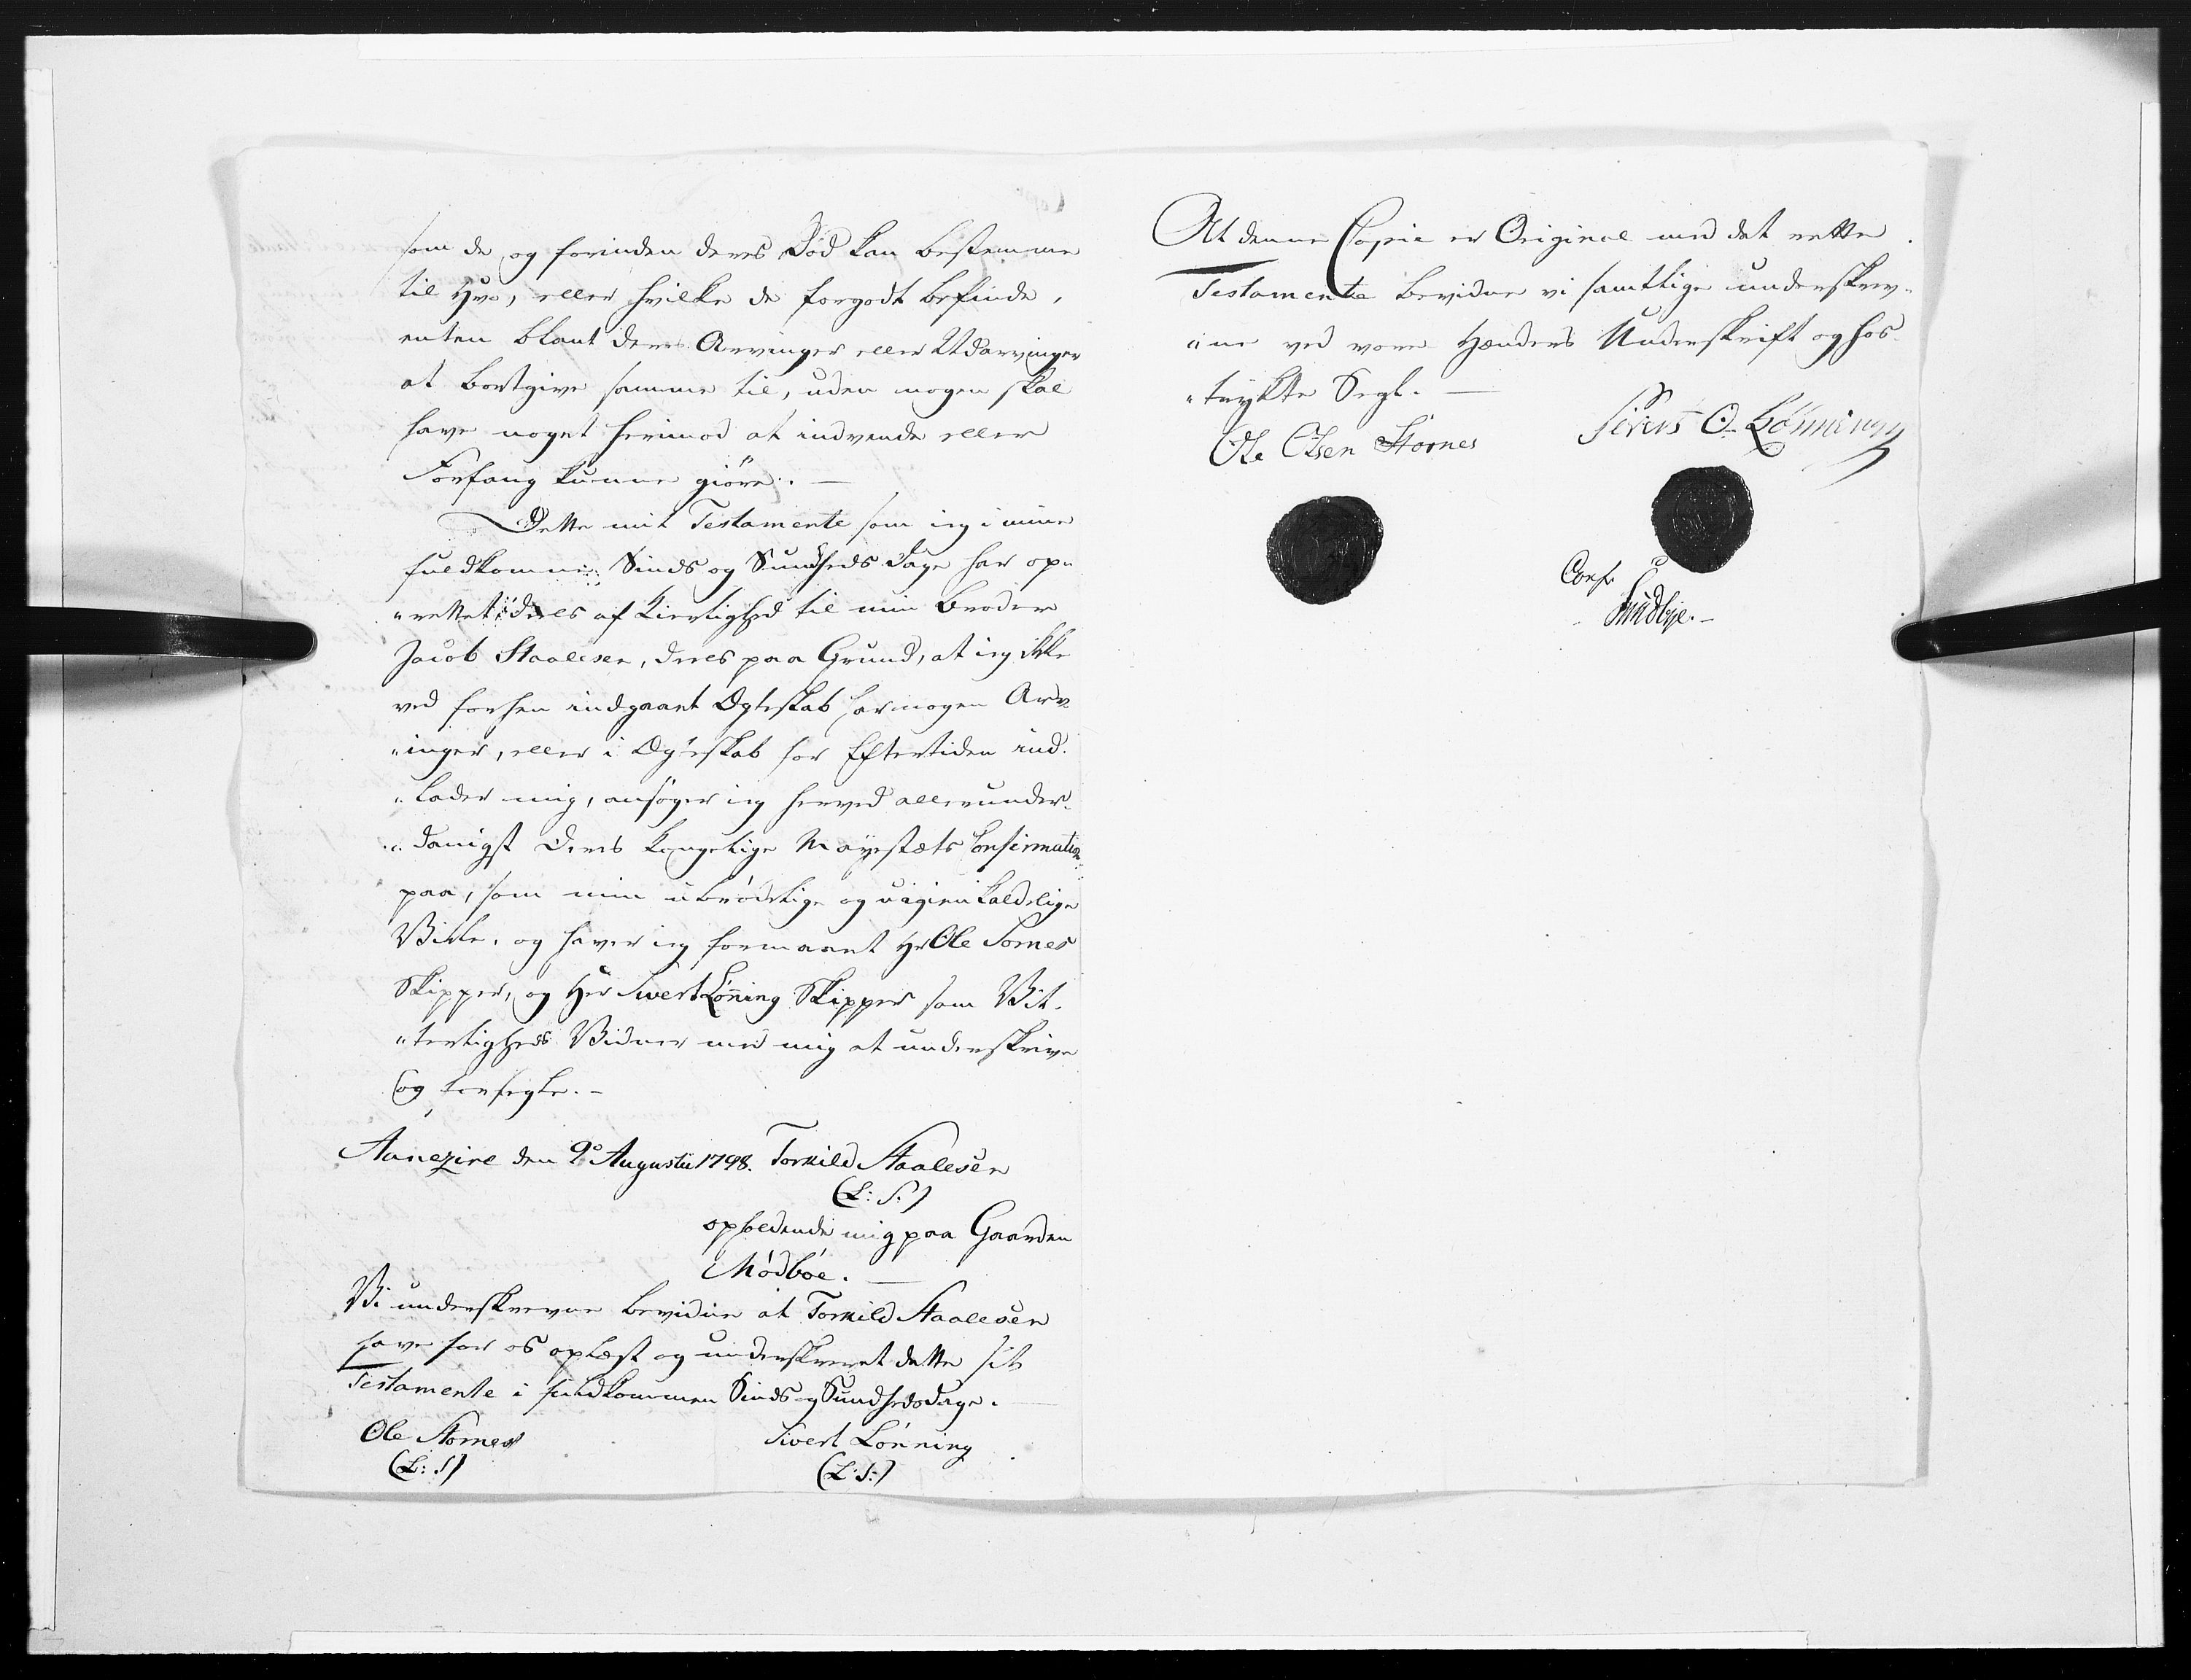 som de og forinden deres Død kan bestemme
til Hvo, eller hvilke de forgodt befinde,
enten blant deres Arvinger eller Udarvinger
at bortgive samme til, uden nogen skal
have noget herimod at indvende eller
Forfang kunne giöre. —
Dette mit Testamente som ieg i mine
fuldkomne Sinds og Sundheds Dage har op„
„rettet deels af Kierlighed til min Broder
Jacob Staalesen, deels paa Grund, at ieg ikke
ved forhen indgaaet Ægteskab har nogen Arv„
„inger, eller i Ægteskab for Eftertiden ind„
„lader mig, ansøger ieg herved allerunder„
„danigst Deres Kongelige Mayestæts Confirmation
paa, som min ubrødelige og uigienkaldelige
Villie, og haver ieg formaaet Hr Ole Stornes
Skipper, og Hr Sivert Lönning Skipper som Vit„
„terligheds Vidner med mig at underskrive
og forsegle. —
Aanezire den 9de Augustii 1798. Torkild Staalesen
(L: S:)
opholdende mig paa Gaarden
Mödböe. —
Vi underskrevne bevidne at Torkild Staalesen
have for os oplæst og underskrevet dette sit
Testamente i fuldkommen Sinds og Sundheds Dage.
Ole Stornes Sivert Lönning
(L: S) (L: S:)
At denne Copie er Original med det rette
Testamente bevidne vi samtlige underskrev„
„ne ved vore Hænders Underskrift og hos„
„trykte Segl. —
Ole Olsen Stornes Sivert O. Lönning
Conf.